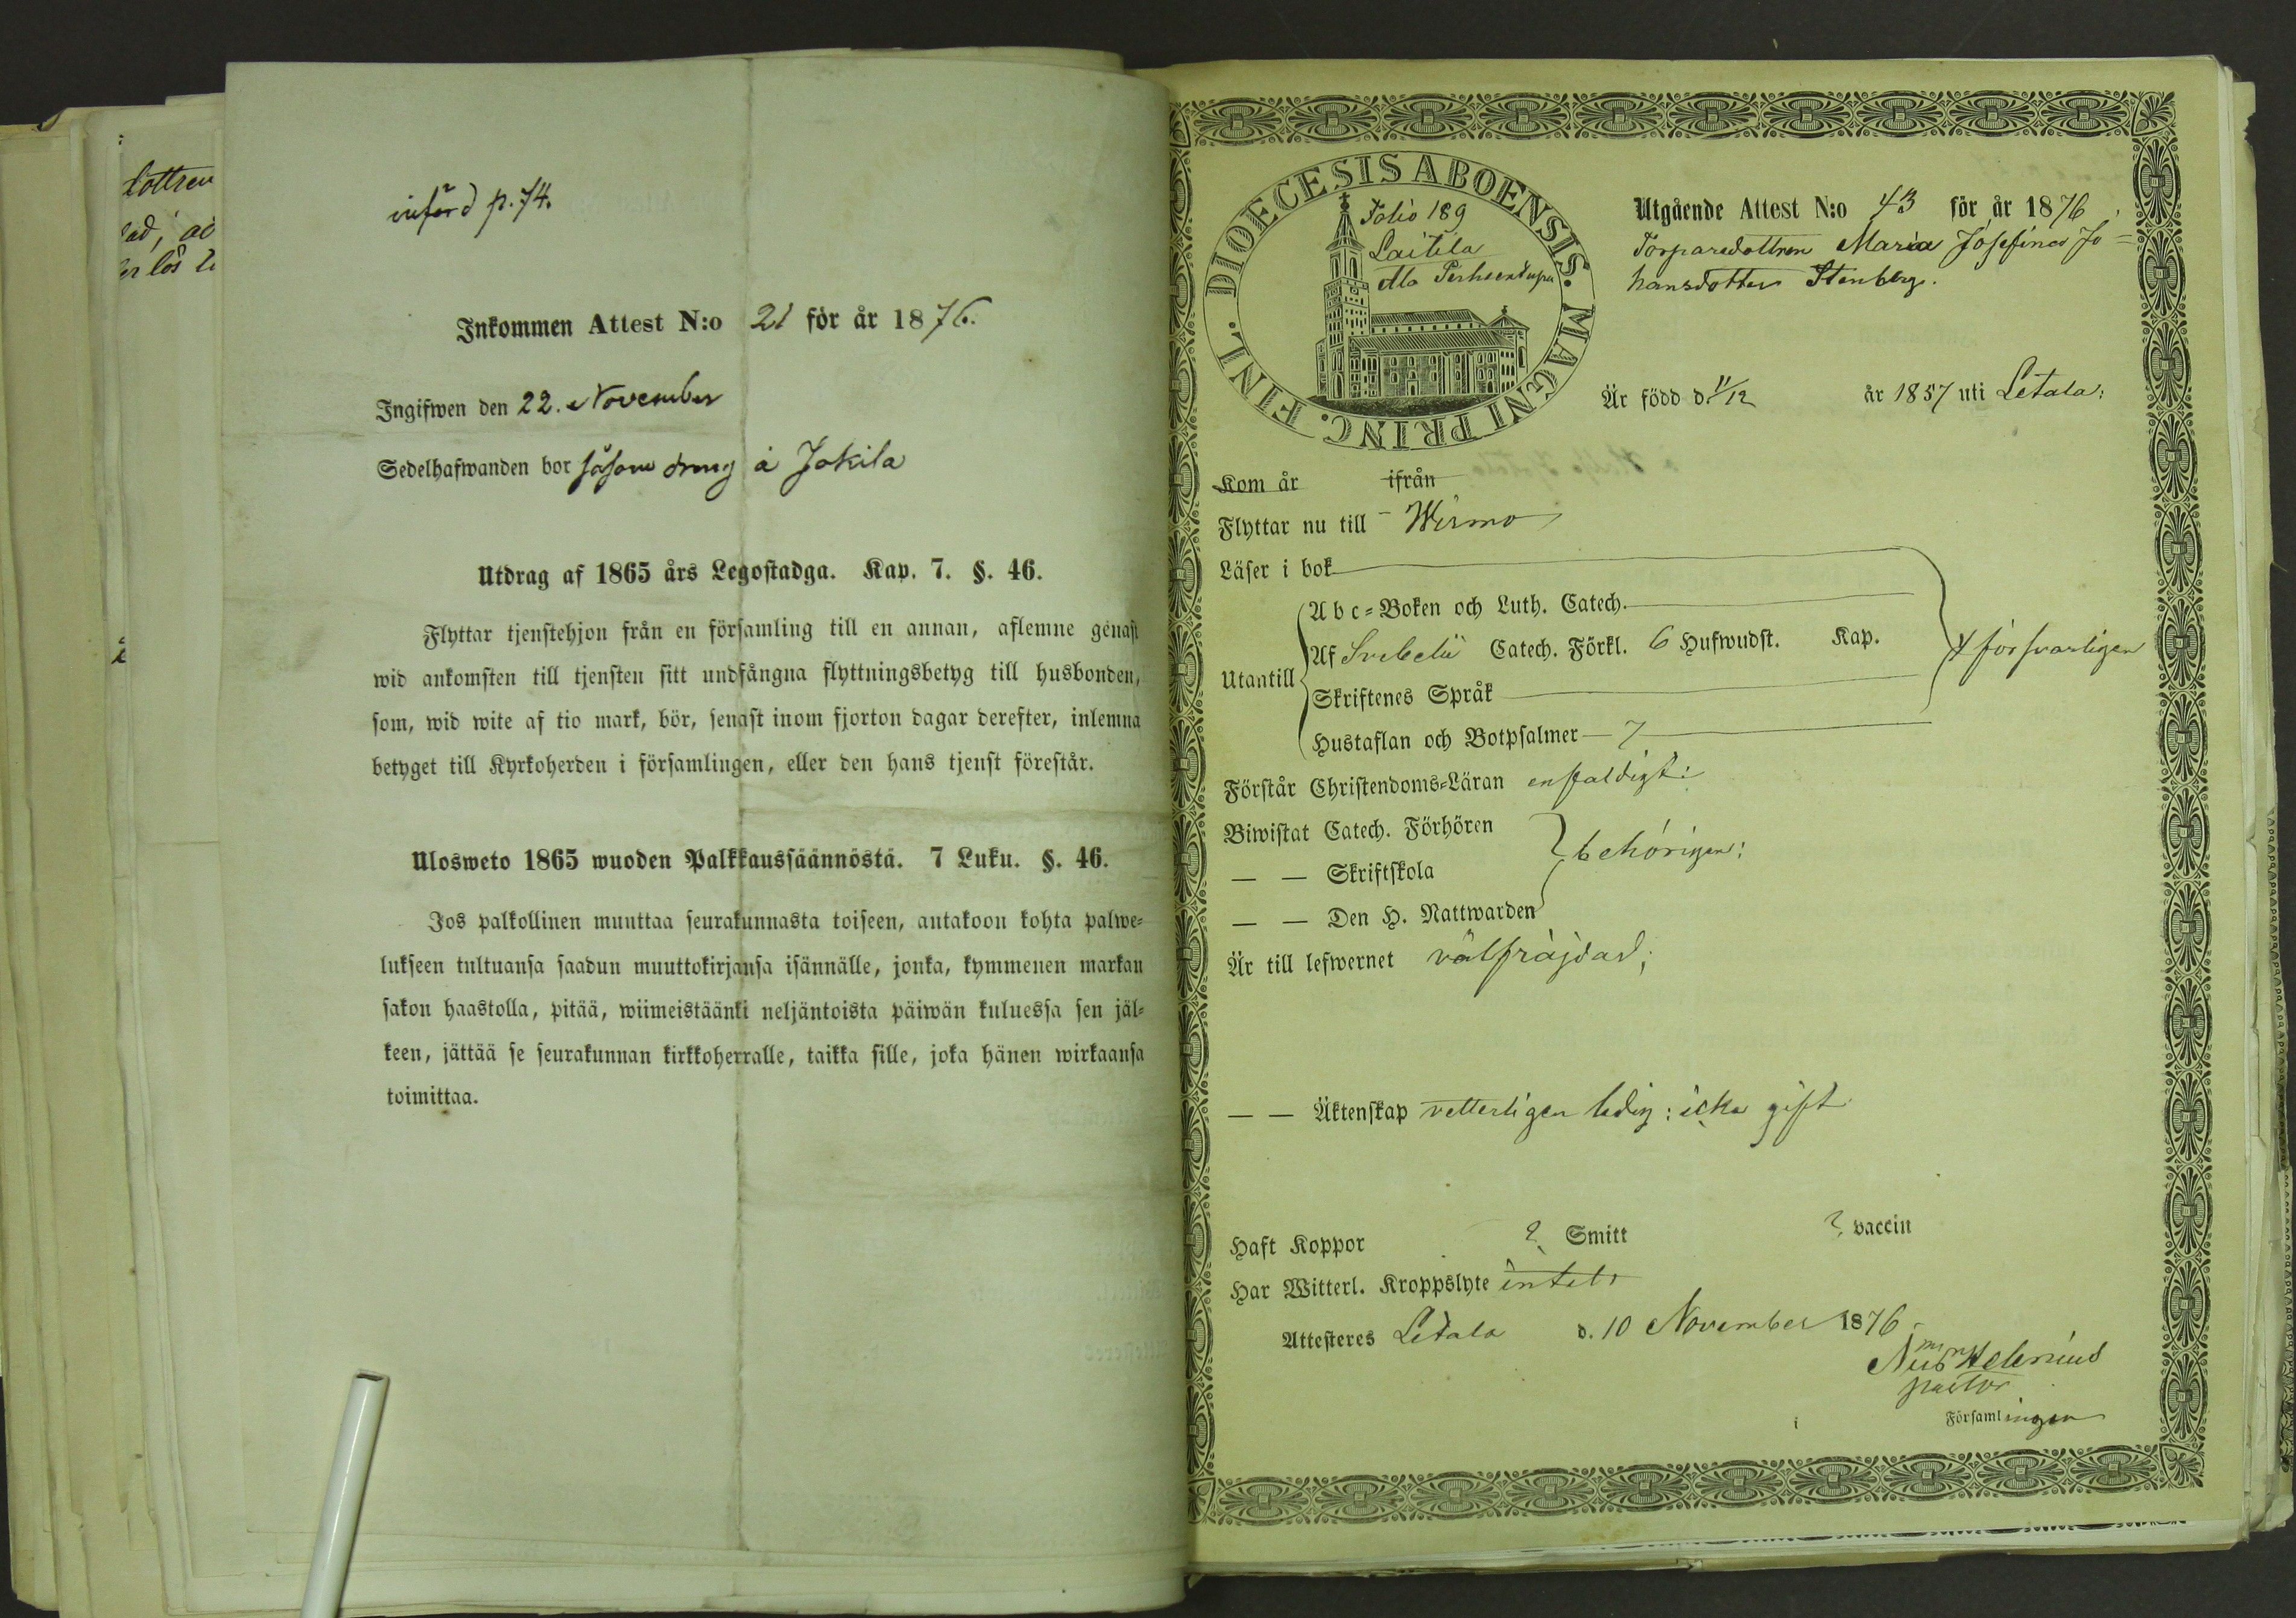 lottren
ad; ac
er lös
införd p. 74.
Inkommen Attest N:o 21 för år 1876.
Ingifwen den 22. November
Sedelhafwanden bor såsom dräng å Jokila
Utdrag af 1865 års Legostadga. Kap. 7. §. 46.
Flyttar tjenstehjon från en församling till en annan, aflemne genast
wid ankomsten till tjensten sitt undfångna flyttningsbetyg till husbonden,
som, wid wite af tio mark, bör, senast inom fjorton dagar derefter, inlemna
betyget till Kyrkoherden i församlingen, eller den hans tjenst förestår.
Ulosweto 1865 wuoden Palkkaussäännöstä. 7 Luku. §. 46.
Jos palkollinen muuttaa seurakunnasta toiseen, antakoon kohta palwe-
lukseen tultuansa saadun muuttokirjansa isännälle, jonka, kymmenen markan
sakon haastolla, pitää, wiimeistäänki neljäntoista päiwän kuluessa sen jäl-
keen, jättää se seurakunnan kirkkoherralle, taikka sille, joka hänen wirkaansa
toimittaa.
DIOECESIS ABOENSIS. MAGNI PRINC. FINL.
Folio 189
Laitila
Utgående Attest N:o 43 för år 1876
Torparedottren Maria Josefina Jo=
hansdotter Stenberg.
Är född d. 11/12 år 1857 uti Letala:
Kom år ifrån
Flyttar nu till Wirmo
Läser i bok
Utantill
Abc-Boken och Luth. Catech.
Af Svebelii Catech. Förkl. 6 Hufwudst. Kap.
Skriftenes Språk
Hustaflan och Botpsalmer 7
försvarligen
Förstår Christendoms-Läran enfaldigt:
Biwistat Catech. Förhören
— — Skriftskola
— — Den H. Nattwarden
behörigen:
Är till lefwernet välfräjdad;
— — Äktenskap vetterligen ledig: icke gift
Haft Koppor ? Smitt ? vaccin
Har Witterl. Kroppslyte intet
Attesteres Letala d. 10 November 1876
Helenius
pastor
i Församlingen